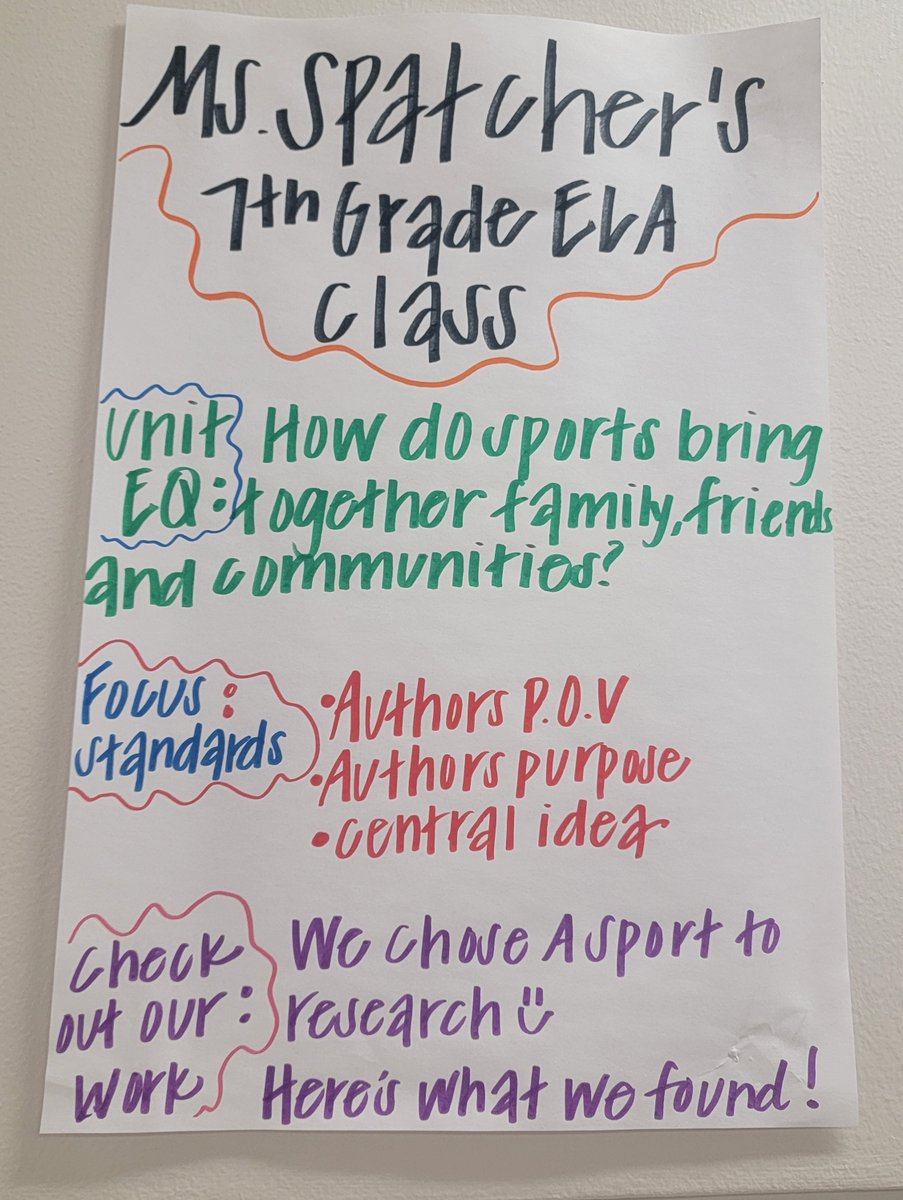 Ms. Spatcher's
7th Grade ELA
Class
Unit How do sports bring
EQ: together family, friends
and communities?
Focus : • Authors P.O.V
standards • Authors purpose
• central idea
Check We chose A sport to
out our : research
work Here's what we found!